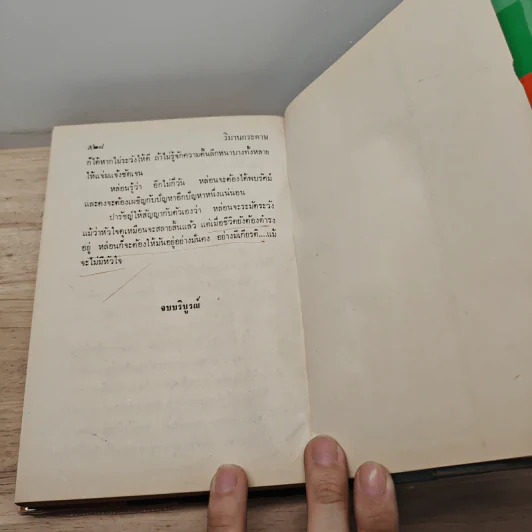 ๕๒๘ วิมานกระดาษ
ก็ได้หากไม่ระวังให้ดี ถ้าไม่รู้จักความตื้นลึกหนาบางทั้งหลาย
ให้แจ่มแจ้งชัดเจน
หล่อนรู้ว่า อีกไม่กี่วัน หล่อนจะต้องได้พบรัศมี
และคงจะต้องเผชิญกับปัญหาอีกปัญหาหนึ่งแน่นอน
ปารัญให้สัญญากับตัวเองว่า หล่อนจะระมัดระวัง
แม้ว่าหัวใจดูเหมือนจะสลายสิ้นแล้ว แต่เมื่อชีวิตยังต้องดำรง
อยู่ หล่อนก็จะต้องให้มันอยู่อย่างมั่นคง อย่างมีเกียรติ....แม้
จะไม่มีหัวใจ
จบบริบูรณ์